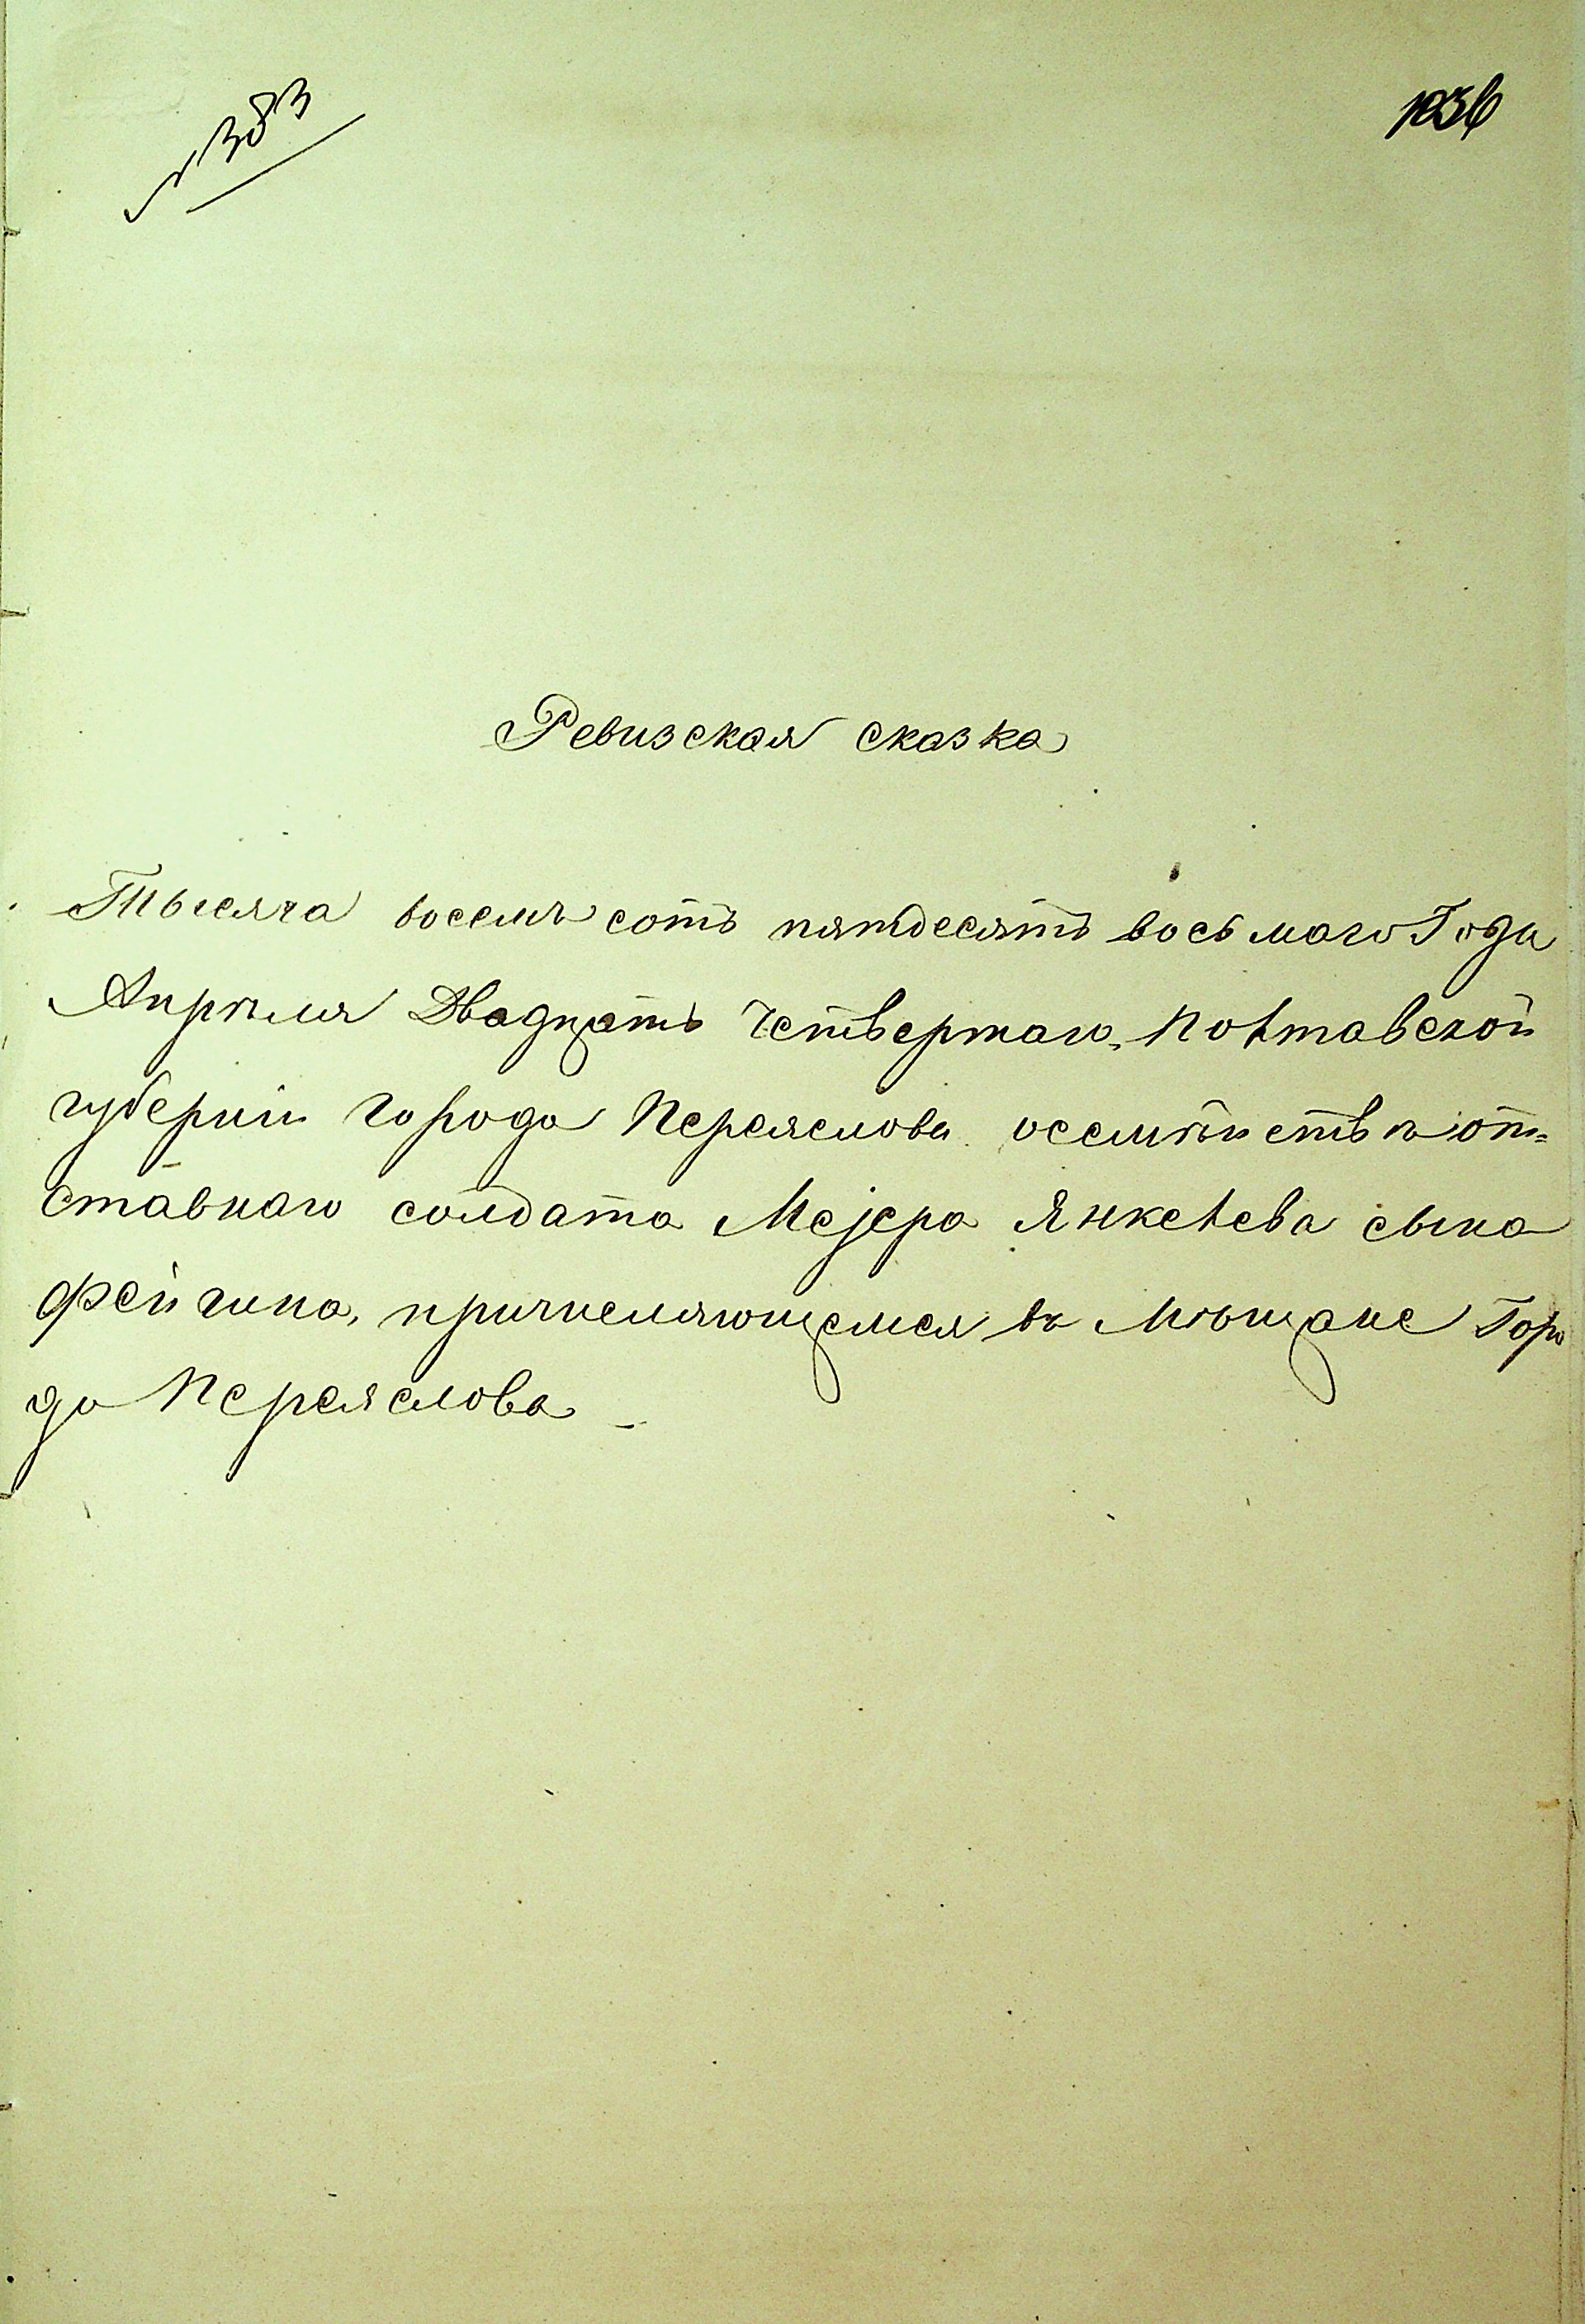 № 383
1036
Ревизская сказка
Тысяча восемь сотъ пятдесятъ восьмаго Года
Апрѣля Двадцать Четвертаго, Полтавской
губерніи города Переяслова о семѣйствѣ от=
ставнаго солдата Меера Янкелева сына
Фейгина, причисляющемся въ Мѣщане Горо
да Переяслова